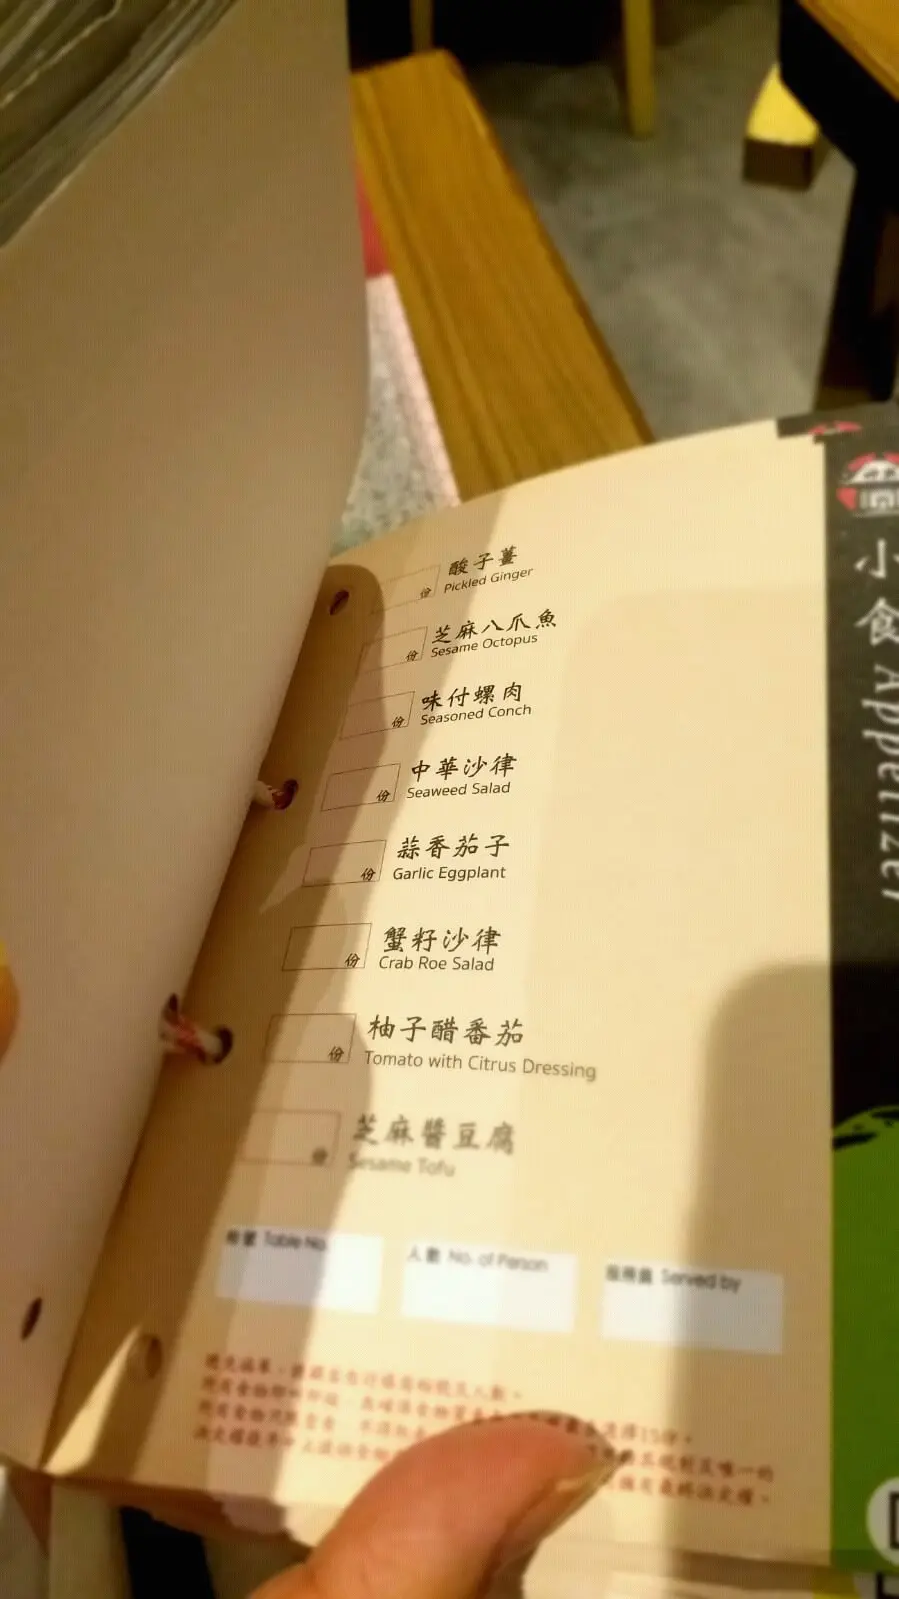 酸子薑
Pickled Ginger
份
芝麻八爪魚
Sesame Octopus
份
味付螺肉
Seasoned Conch
份
中華沙律
Seaweed Salad
份
蒜番茄子
Garlic Eggplant
份
蟹籽沙律
Crab Roe Salad
份
柚子醋番茄
Tomato with Citrus Dressing
份
芝麻醬豆腐
Sesame Tofu
份
檯號 Table No.
人數 No. of Person
服務員 Served by
小食 Appetizer